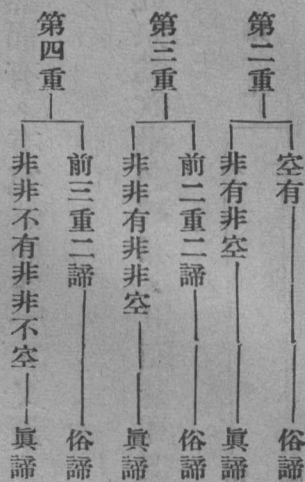 第二重
空有
俗諦
非有非空
眞諦
第三重
前二重二諦
俗諦
非非有非非空
眞諦
第四重
前三重二諦
俗諦
非非不有非非不空
眞諦